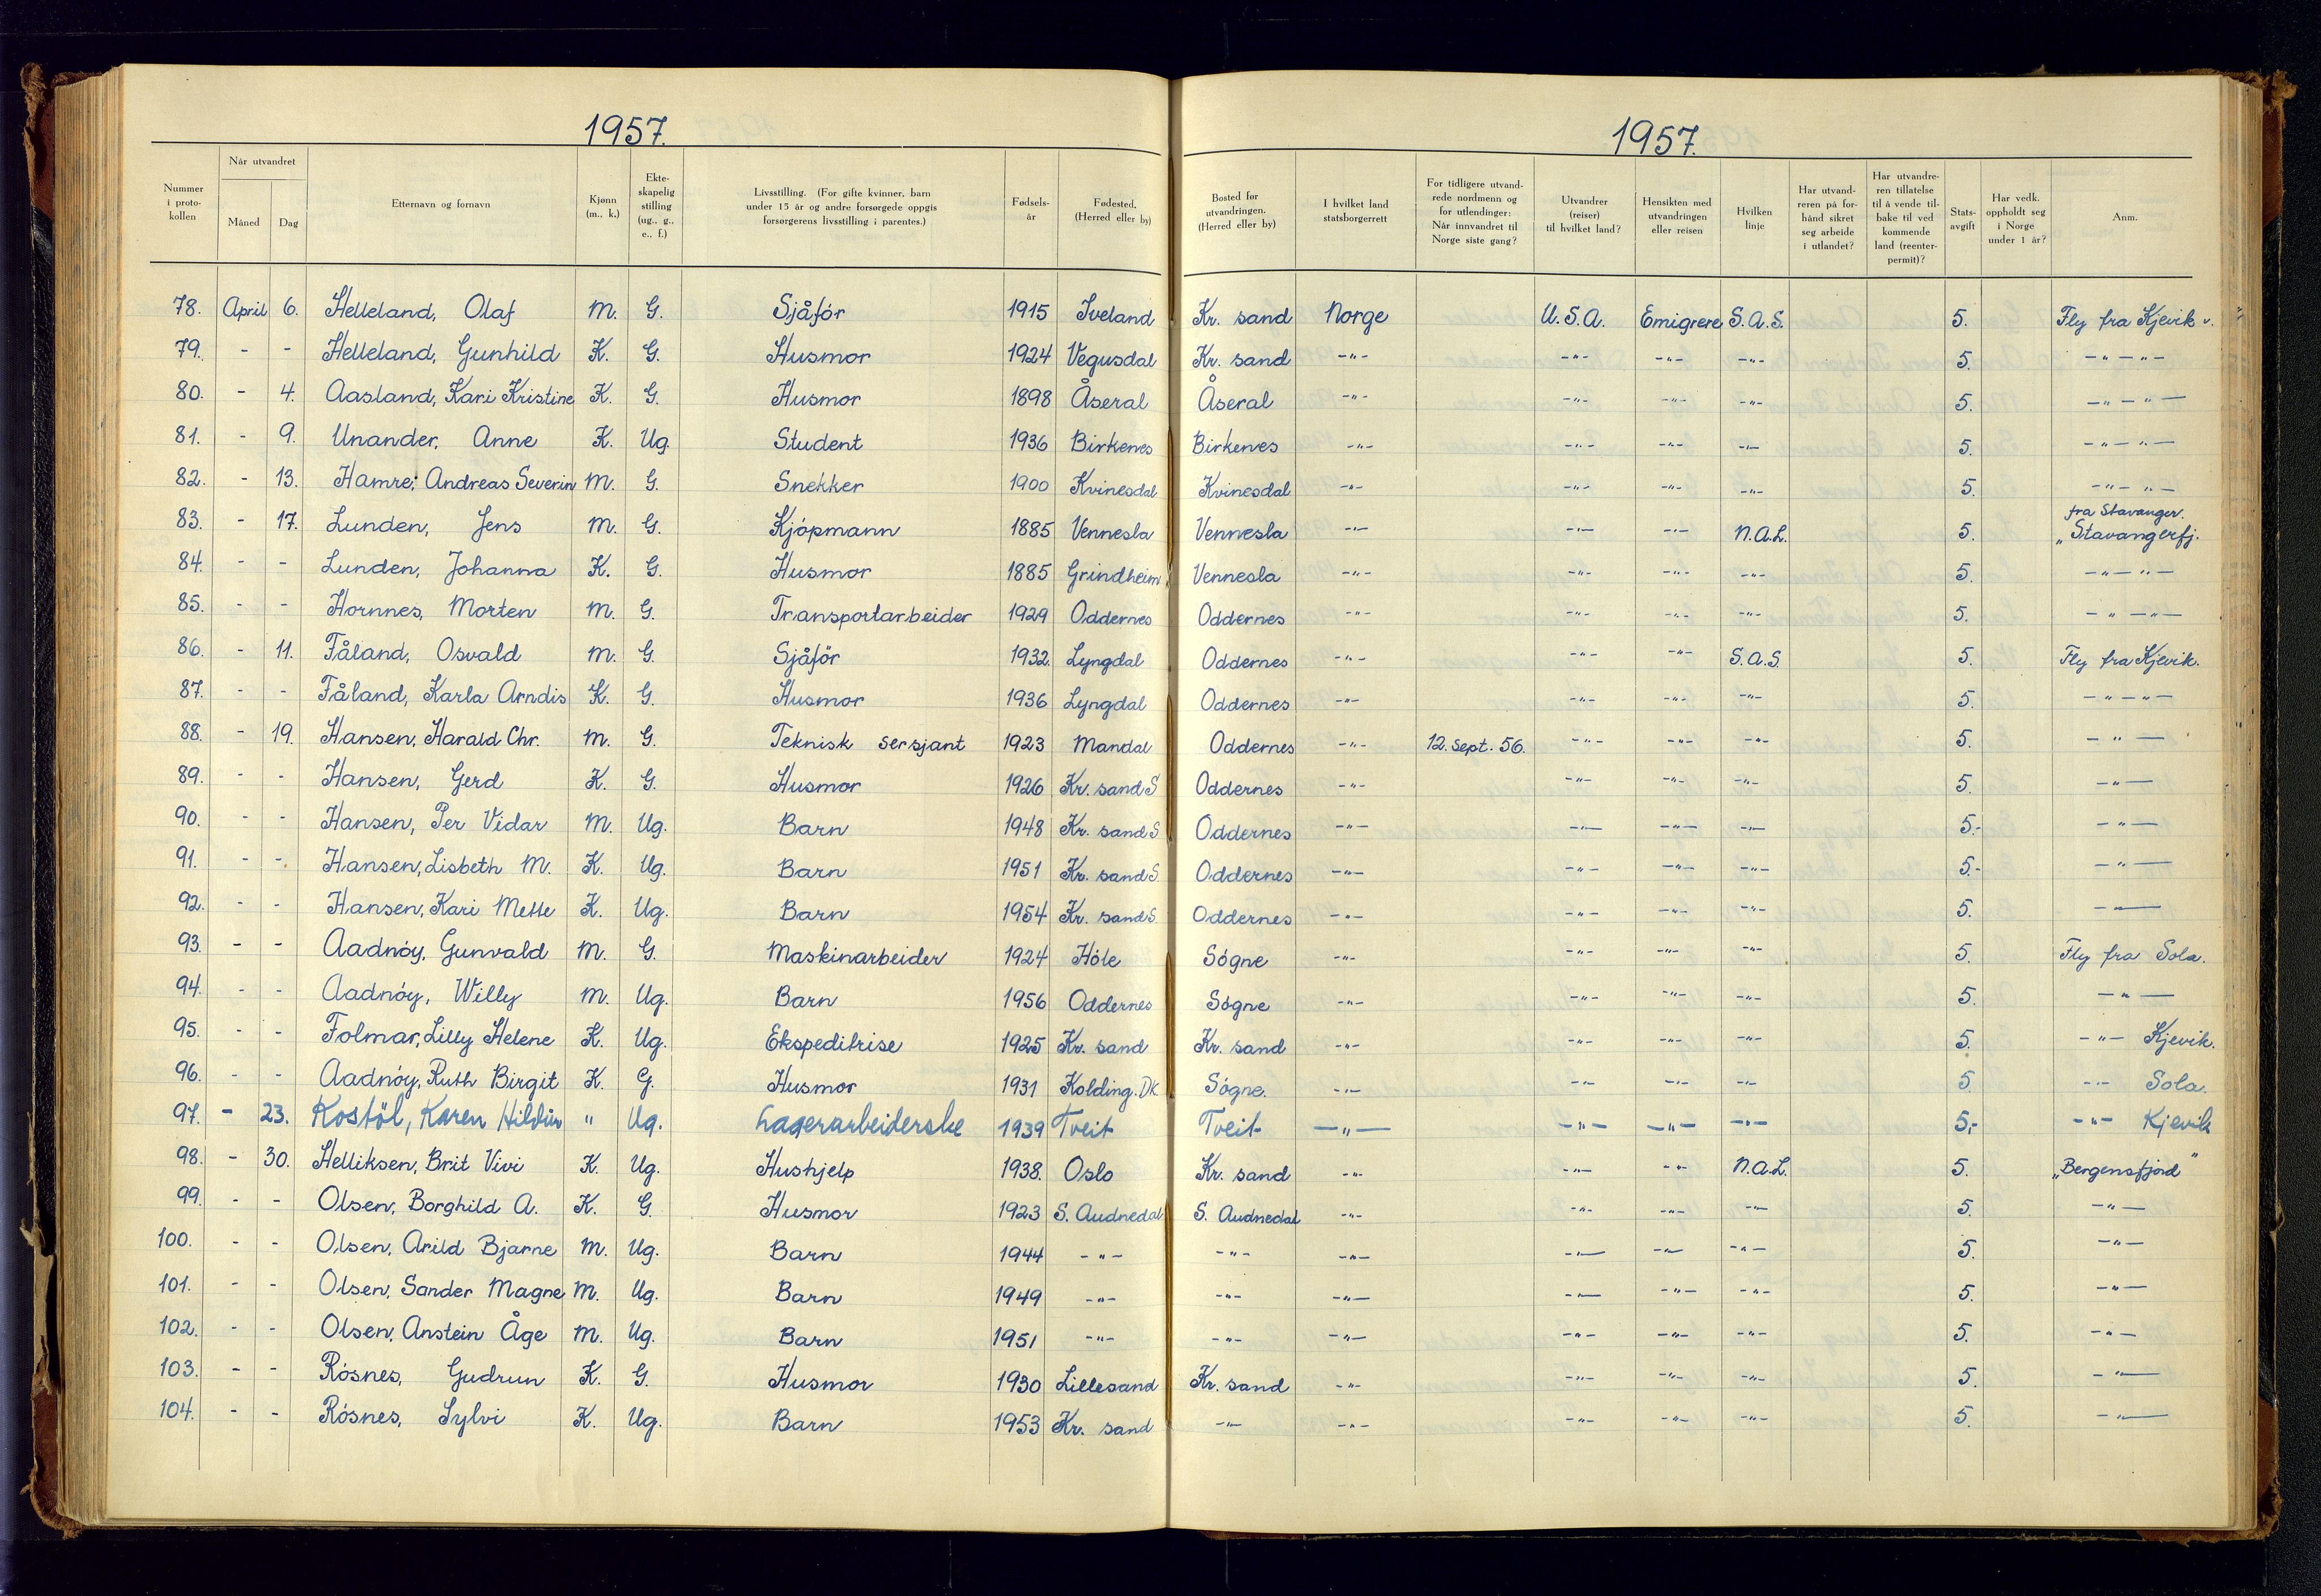 1957.
1957.
Nummer i proto- kollen
Når utvandret
Måned
Dag
Etternavn og fornavn
Kjønn (m., k.)
Ekte- skapelig stilling (ug., g., e., f.)
Livsstilling. (For gifte kvinner, barn under 15 år og andre forsørgede oppgis forsørgerens livsstilling i parentes.)
Fødsels- år
Fødested. (Herred eller by)
Bosted før utvandringen. (Herred eller by)
I hvilket land statsborgerrett
For tidligere utvand- rede nordmenn og for utlendinger: Når innvandret til Norge siste gang?
Utvandrer (reiser) til hvilket land?
Hensikten med utvandringen eller reisen
Hvilken linje
Har utvand- reren på for- hånd sikret seg arbeide i utlandet?
Har utvandre- ren tillatelse til å vende til- bake til ved kommende land (reenter- permit)?
Stats- avgift
Har vedk. oppholdt seg i Norge under 1 år?
Anm.
78. April 6. Helleland, Olaf M. G. Sjåfór 1915 Iveland Kr. sand Norge U.S.A. Emigrere S.A.S. 5. Fly fra Kjevik v.
79. - - Helleland, Gunhild K. G. Husmor 1924 Vegusdal Kr. sand -"- -"- -"- -"- 5. -"-"-
80. - 4. Aasland, Kari Kristine K. G. Husmor 1898 Åseral Åseral -"- -"- -"- -"- 5. -"-"-
81. - 9. Unander, Anne K. Ug. Student 1936 Birkenes Birkenes -"- -"- -"- -"- 5. -"-"-
82. - 13. Hamre, Andreas Severin M. G. Snekker 1900 Kvinesdal Kvinesdal -"- -"- -"- -"- 5. -"-"-
83. - 17. Lunden, Jens M. G. Kjópmann 1885 Vennesla Vennesla -"- -"- -"- N.A.L. 5. fra Stavanger. "Stavangerfj.
84. - - Lunden, Johanna K. G. Husmor 1885 Grindheim Vennesla -"- -"- -"- -"- 5. -"-"-
85. - - Hornnes, Morten M. G. Transportarbeider 1929 Oddernes Oddernes -"- -"- -"- -"- 5. -"-"-
86. - 11. Fåland, Osvald M. G. Sjåför 1932. Lyngdal Oddernes -"- -"- -"- S.A.S. 5. Fly fra Kjevik.
87. - - Fåland, Karla Arndis K. G. Husmor 1936 Lyngdal Oddernes -"- -"- -"- -"- 5. -"-"-
88. - 19. Hansen, Harald Chr. M. G. Teknisk sersjant 1923 Mandal Oddernes -"- 12. Sept. 56. -"- -"- -"- 5. -"-
89. - - Hansen, Gerd K. G. Husmor 1926 Kr. sand S Oddernes -"- -"- -"- -"- 5. -"-
90. - - Hansen, Per Vidar M. Ug. Barn 1948 Kr. sand S Oddernes -"- -"- -"- -"- 5.- -"-
91. - - Hansen, Lisbeth M. K. Ug. Barn 1951 Kr. sand S. Oddernes -"- -"- -"- -"- 5.- -"-
92. - - Hansen, Kari Mette K. Ug. Barn 1954 Kr. sand S. Oddernes -"- -"- -"- -"- 5. -"-
93. - - Aadnóy, Gunvald M. G. Maskinarbeider 1924 Hóle Sógne -"- -"- -"- -"- 5. Fly fra Sola.
94. - - Aadnóy, Willy M. Ug. Barn 1956 Oddernes Sógne -"- -"- -"- -"- 5. -"-
95. - - Folmar, Lilly Helene K. Ug. Ekspeditrise 1925 Kr. sand Kr. sand -"- -"- -"- -"- 5. -"- Kjevik.
96. - - Aadnóy, Ruth Birgit K. G. Husmor 1931 Kolding. DK. Sógne. -"- -"- -"- -"- 5 -"- Sola.
97. - 23. Kostöl, Karen Hildur " Ug. Lagerarbeiderske 1939 Tveit Tveit -"- -"- -"- -"- 5,- -"- Kjevik
98. - 30. Helliksen, Brit Vivi K. Ug. Hushjelp 1938. Oslo Kr. sand -"- -"- -"- N.A.L. 5. "Bergensfjord"
99. - - Olsen, Borghild A. K. G. Husmor 1923 S. Audnedal S. Audnedal -"- -"- -"- -"- 5. -"-
100. - - Olsen, Arild Bjarne M. Ug. Barn 1944 -"- -"- -"- -"- -"- -"- 5. -"-
101. - - Olsen, Sander Magne M. Ug. Barn 1949 -"- -"- -"- -"- -"- -"- 5. -"-
102. - - Olsen, Anstein Åge M. Ug. Barn 1951 -"- -"- -"- -"- -"- -"- 5. -"-
103. - - Rósnes, Gudrun K. G. Husmor 1930 Lillesand Kr. sand -"- -"- -"- -"- 5. -"-
104. - - Rósnes, Sylvi K. Ug. Barn 1953 Kr. sand -"- -"- -"- -"- -"- 5. -"-